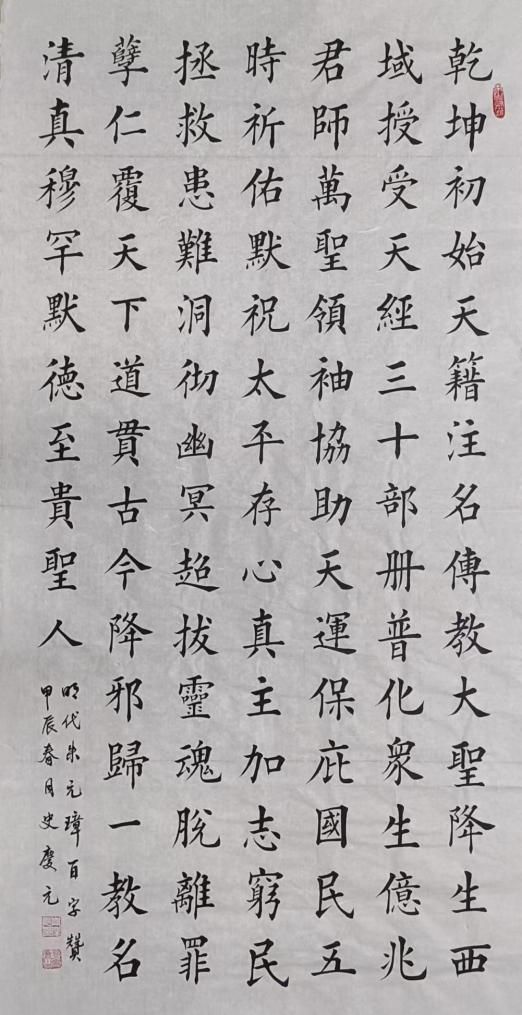 乾坤初始天籍注名傳教大聖降生西
域授受天經三十部册普化衆生億兆
君師萬聖領袖協助天運保庇國民五
時祈佑默祝太平存心真主加志窮民
拯救患難洞彻幽冥超拔靈魂脫離罪
孽仁覆天下道貫古今降邪歸一教名
清真穆罕默德至貴聖人
明代朱元璋百字贊
甲辰春月史慶元